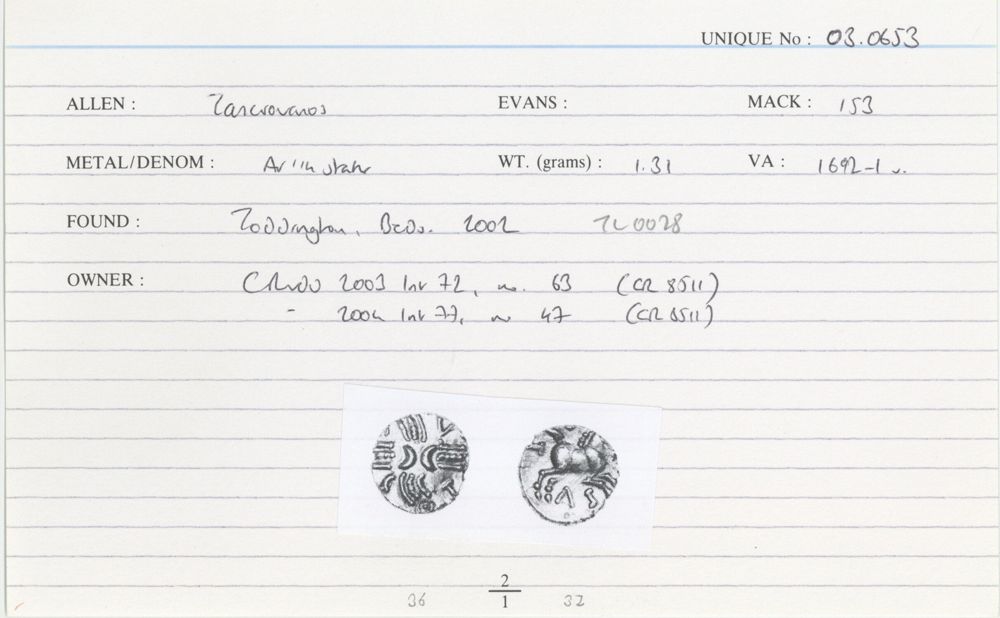 UNIQUE No : 03.0653
ALLEN : Tasciovanos EVANS : MACK : 153
METAL/DENOM : AV 1/4 stater WT. (grams) : 1.31 VA : 1692-1
FOUND : Toddington, Beds. 2002 TL0028
OWNER : 2003 Inv 72, no. 63 (CR 8511)
- 2004 Inv 77, no 47 (CR 8511)
2
36 1 32